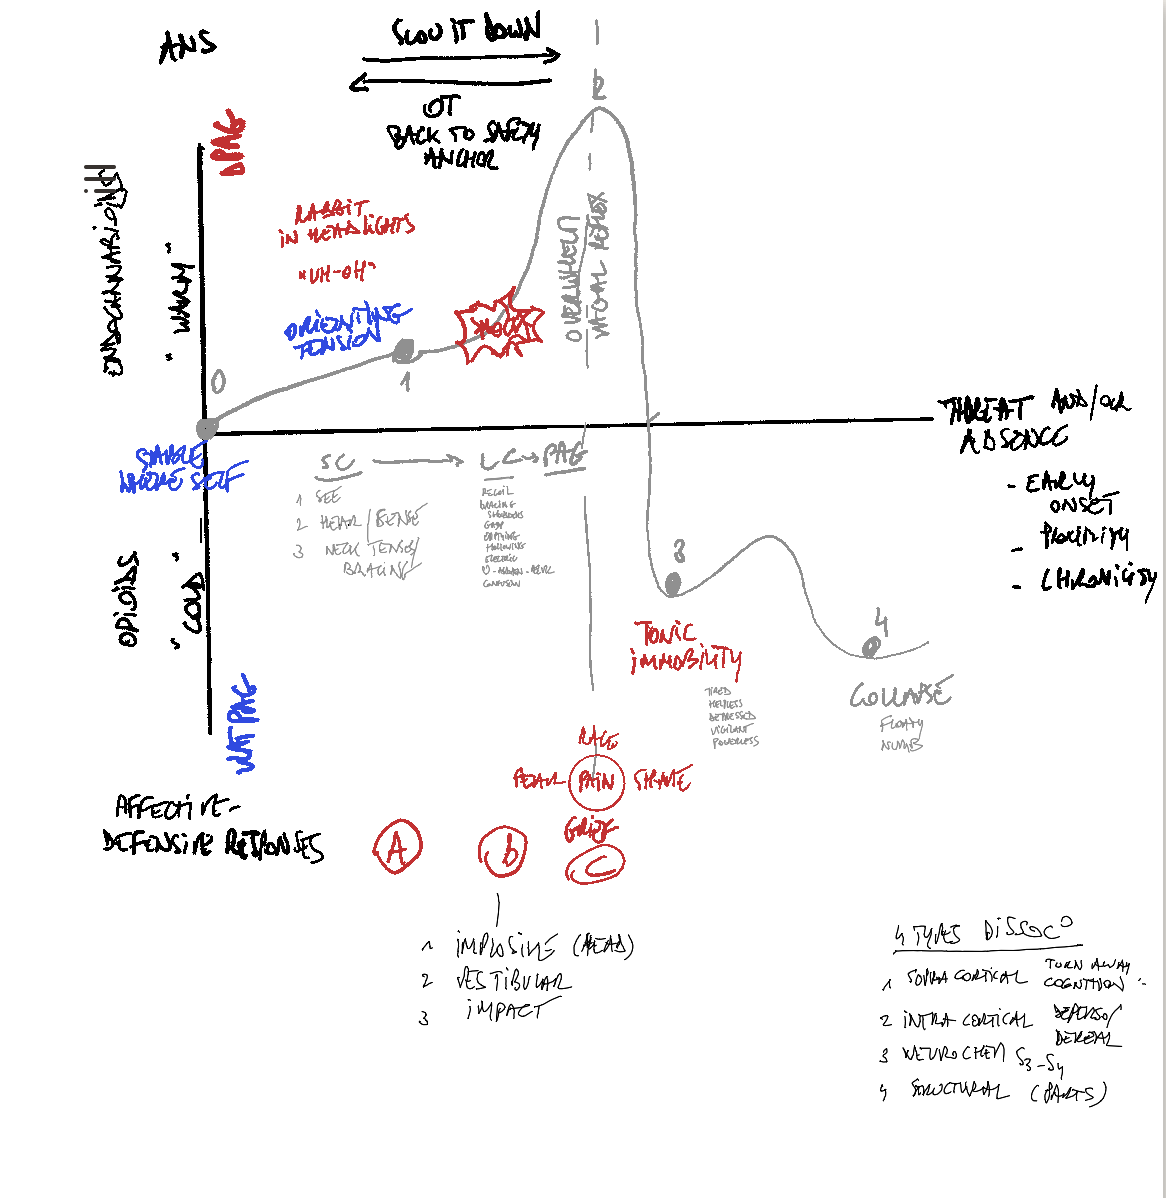 ANS
SLOW IT DOWN
OT
BACK TO SAFETY
ANCHOR
DPAG
ENDOCANNABIOIDS
"WARM"
RABBIT
IN HEADLIGHTS
"UH-OH"
ORIENTING
TENSION
0
1
2
OVERWHELM
VAGAL REFLEX
STABLE
WHOLE SELF
THREAT AND/OR
ABSENCE
- EARLY
ONSET
- CHRONICITY
SC
LC → PAG
1 SEE
2 HEAR/SENSE
3 NECK TENSES/
BRACING
RECOIL
BRACING
GASP
EMPTYING
HOLLOWING
ELECTRIC
CONFUSION
OPIOIDS
"COLD"
VLATPAG
3
TONIC
IMMOBILITY
TIRED
HELPLESS
DEPRESSED
VIGILANT
POWERLESS
4
COLLAPSE
FLOATY
NUMB
RAGE
FEAR PAIN SHAME
GRIEF
AFFECTIVE-
DEFENSIVE RESPONSES
A b C
1 IMPLOSIVE (HEAD)
2 VESTIBULAR
3 IMPACT
4 TYPES DISSOC
1 SUPRA CORTICAL TURN AWAY
COGNITION
2 INTRA CORTICAL DEPERSO/
DEREAL
3 NEUROCHEM S3-S4
4 STRUCTURAL (PARTS)